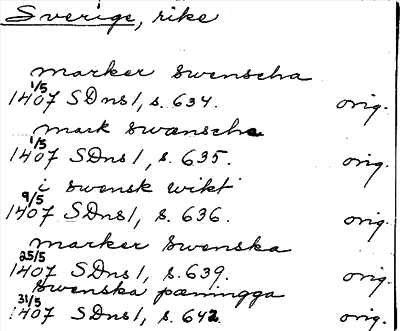 Sverige, rike
marker swenscha
1/5
1407 SDns 1, s. 634. orig.
mark swænsche
1/5
1407 SDns 1, s. 635. orig.
i swensk wikt
9/5
1407 SDns 1, s. 636. orig.
marker swenska
25/5
1407 SDns 1, s. 639. orig.
swenska pæningga
31/5
1407 SDns 1, s. 642. orig.